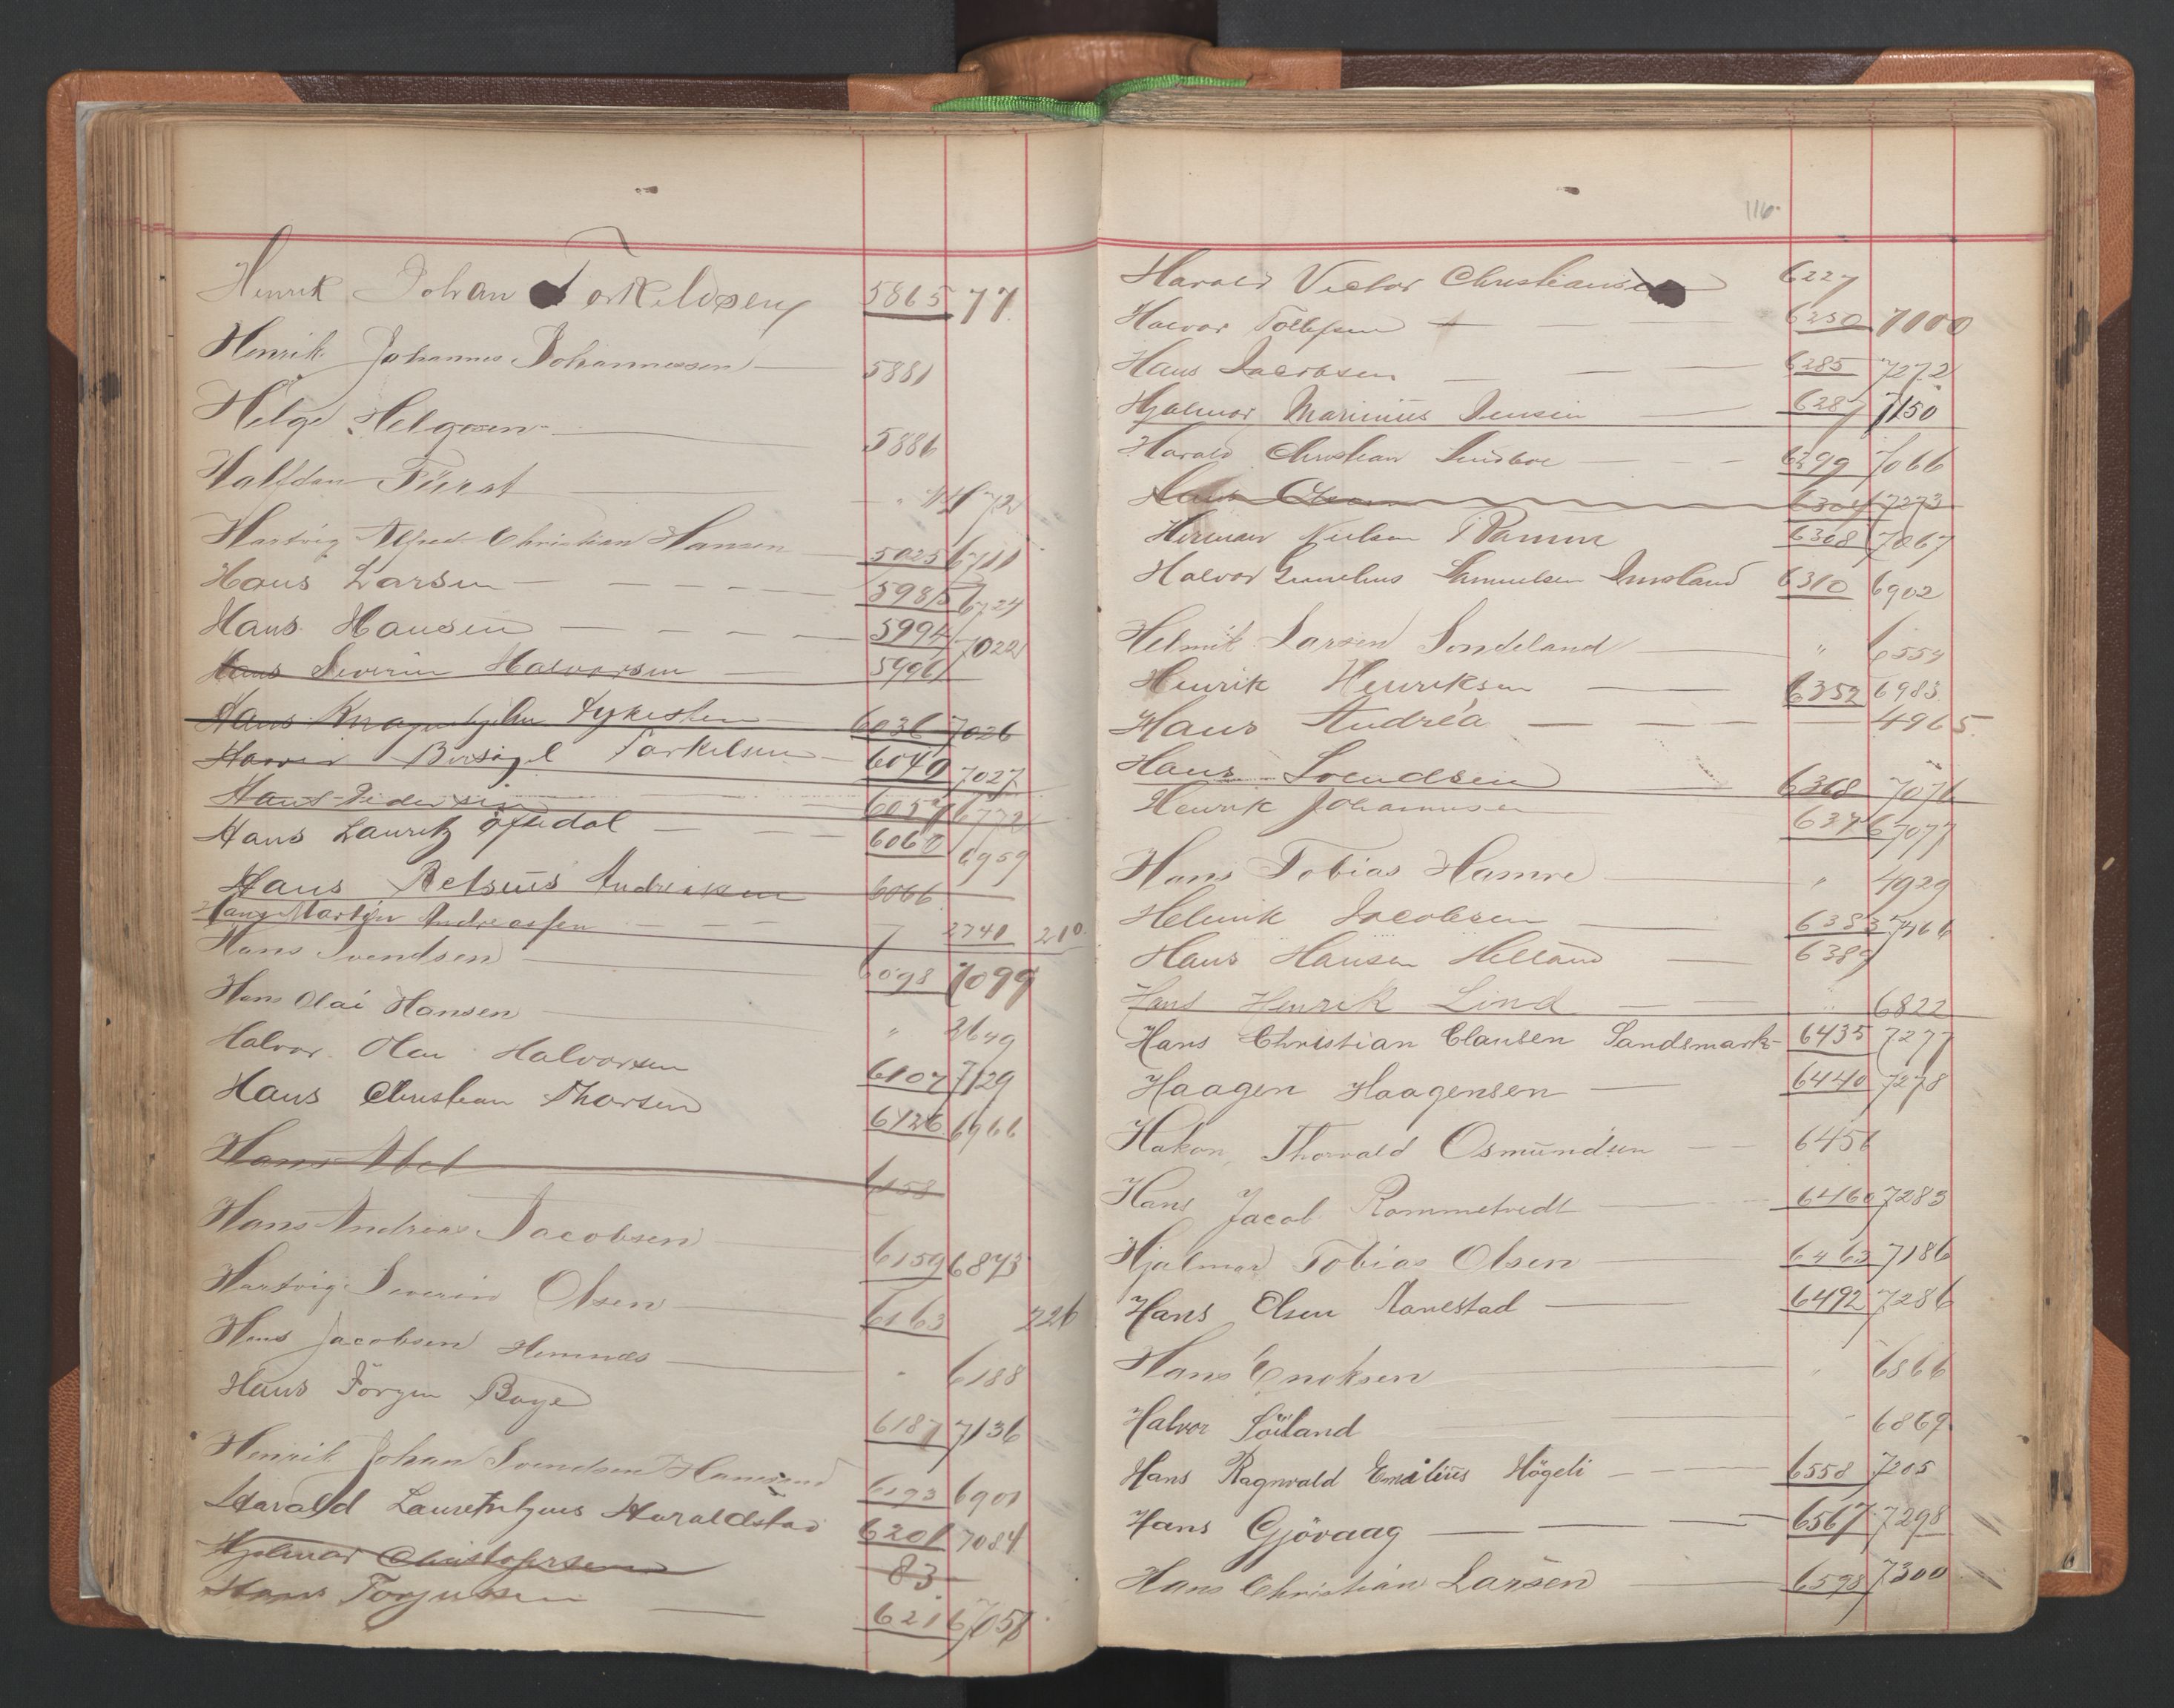 Henrik Johan Torkildsen 5865 77
Henrik Johannes Johannessen 5881
Helge Helgesen 5886
Halfdan Fürst " 72
Hartvig Alfred Christian Hansen 5925 6711
Hans Larsen 5985 6724
Hans Hansen 5994 7022
Hans Severin Halvorsen 5996
Hans 6036 7026
Torkelsen 6040 7027
Hans Pedersen 6059 6772
Hans Lauritz Oftedal 6062 6959
Hans Andreasen 6066
Hans Martin Andreassen 2741 210
Hans Svendsen 6098 7099
Hans Olai Hansen " 2649
Halvor Olai Halvorsen 6107 7129
Hans Christian Thorsen 6126 6966
Hans Abel 6158
Hans Andreas Jacobsen 6159 6873
Hartvig Severin Olsen 6163 226
Hans Jacobsen Hemnæs " 6188
Hans Jörgen Boye 6187 7136
Henrik Johan Svendsen 6193 6901
Harald Haraldstad 6201 7084
Hjalmar Christofersen 83
Hans Torjussen 6216 7058
116
Harald Victor Christiansen 6227
Halvor Tollefsen 6250 7000
Hans Jacobsen 6285 7272
Hjalmar Marinius Jensen 6287 7150
Harald Christian Lindboe 6299 7066
Hans 6304 7273
Herman Nielsen Ramm 6308 7067
Halvor Samuelsen Imsland 6310 6902
Helmik Larsen Sondeland " 6554
Henrik Henriksen 6352 6983
Hans Andréa 4965
Hans Svendsen 6368 7076
Henrik Johannesen 6376 7077
Hans Tobias Hamre " 4929
Helmik Jacobsen 6383 7166
Hans Hansen Helland 6389
Hans Henrik Lind " 6822
Hans Christian Clausen Sandsmark 6435 7277
Haagen Haagensen 6440 7278
Hakon Thorvald Osmundsen 6456
Hans Jacob Rommetvedt 6460 7283
Hjalmar Tobias Olsen 6463 7186
Hans Olsen Aanestad 6492 7286
Hans Enoksen " 6866
Halvor Söiland " 6869
Hans Ragnvald Emilius Högeli 6558 7205
Hans Gjövaag 6567 7298
Hans Christian Larsen 6598 7300